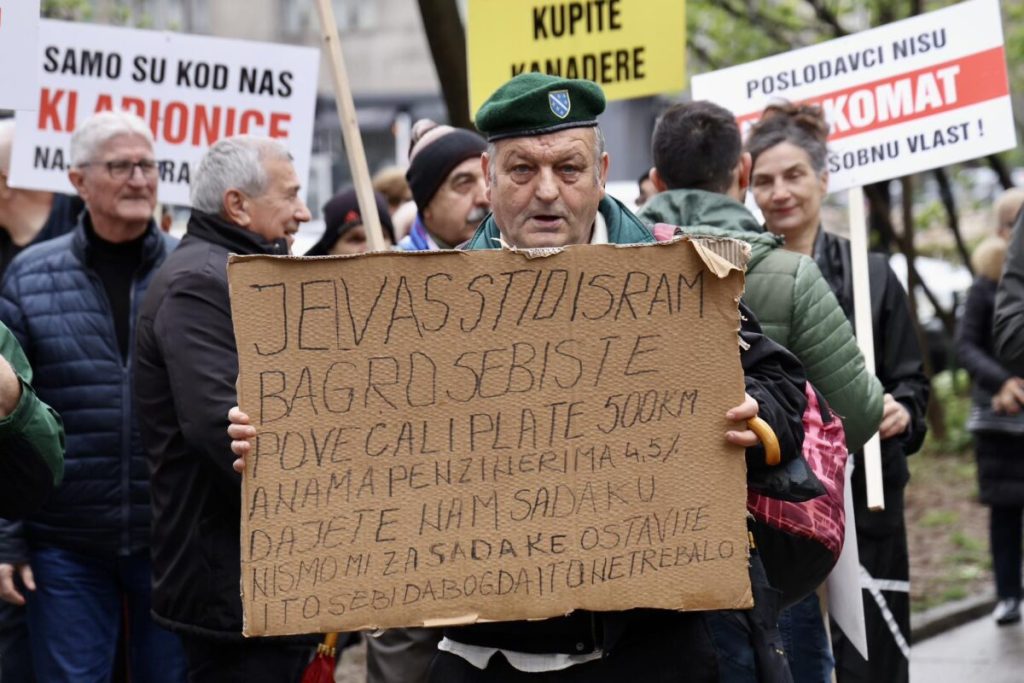 SAMO SU KOD NAS
KLADIONICE
KUPITE
KANADERE
POSLODAVCI NISU
KOMAT
VLAST !
JEIVAS STID I SRAM
BAGRO SEBI STE
POVEĆALI PLATE 500KM
A NAMA PENZIHERIMA 4,5%
DAJETE NAM SADAKU
NISMO MI ZA SADAKE OSTAVITE
I TO SEBI DABOGDA I TO NETREBALO